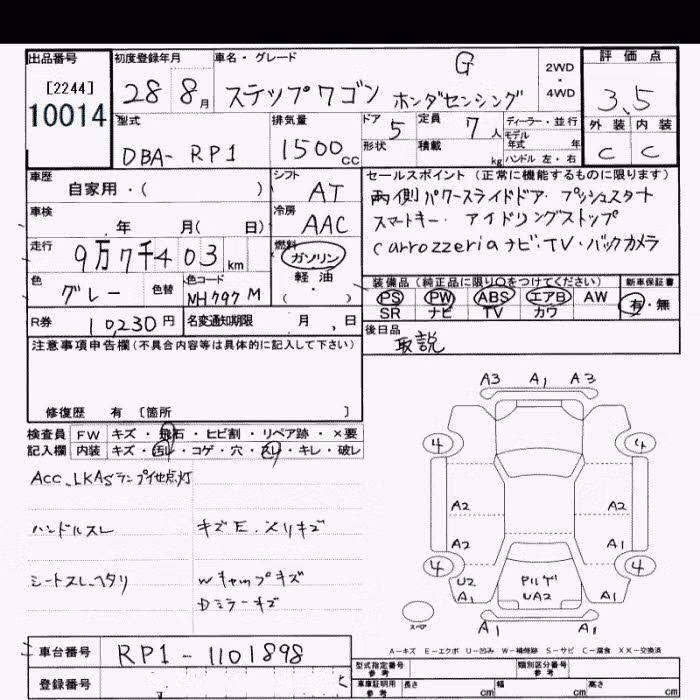 出品番号 初度登録年月 車名・グレード 評価点
[2244]
10014
28 8月 ステップワゴン ホンダセンシング G
2WD・4WD
3.5
外装 内装
C C
型式 DBA- RP1
排気量 1500cc
ドア 5
定員 7人
形状 積載 kg
ディーラー・並行
モデル年式 年
ハンドル 左・右
車歴 自家用・( )
シフト AT
車検 年 月( 日)
冷房 AAC
走行 9万7千403km
燃料 ガソリン 軽油・( )
色 グレー 色替
色コード NH797M
R券 10,230円
名変通知期限 月 日
セールスポイント(正常に機能するものに限ります)
両側パワースライドドア・プッシュスタート
スマートキー・アイドリングストップ
carrozzeriaナビ・TV・バックカメラ
装備品(純正品に限り○をつけてください) 新車保証書
PS PW ABS エアB AW
SR ナビ TV カワ
有・無
後日品 取説
注意事項申告欄(不具合内容等は具体的に記入して下さい)
修復歴 有〔箇所 〕
検査員 FW キズ・飛石・ヒビ割・リペア跡・×要
記入欄 内装 キズ・汚レ・コゲ・穴・スレ・キレ・破レ
ACC、LKASランプ他点灯
ハンドルスレ キズE、メリキズ
シートスレ、ヘタリ Wキャップキズ
Dミラーキズ
A3 A1 A3
4 4
A2 A2
A2 A1
4 4
U2 A1 UA2 A1
スペア
A1 A1
A-キズ E-エクボ U-凹み W-補修跡 S-サビ C-腐食 XX-交換済
車台番号 RP1-1101898
登録番号
型式指定番号 参考
類別区分番号 参考
車庫証明用 参考 長さ cm 幅 cm 高さ cm